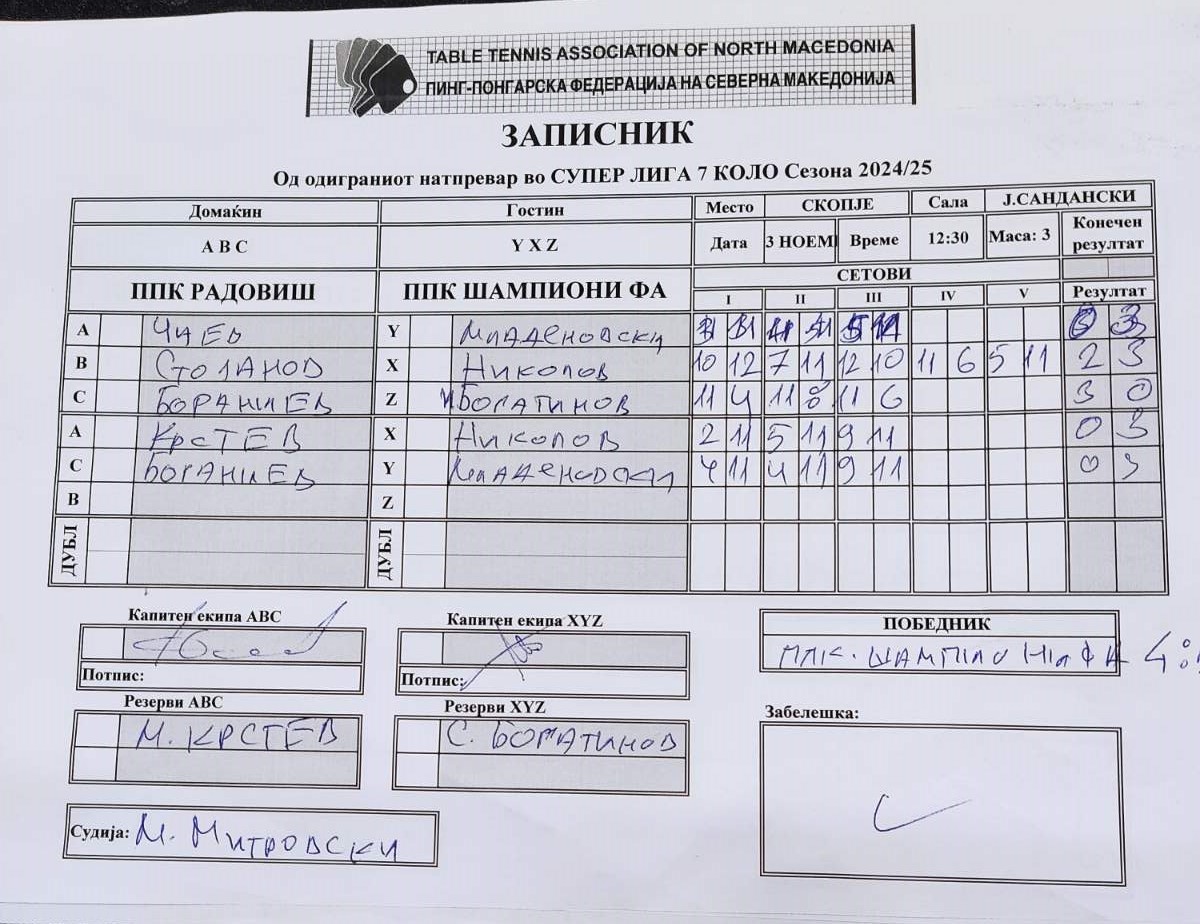 TABLE TENNIS ASSOCIATION OF NORTH MACEDONIA
ПИНГ-ПОНГАРСКА ФЕДЕРАЦИЈА НА СЕВЕРНА МАКЕДОНИЈА
ЗАПИСНИК
Од одиграниот натпревар во СУПЕР ЛИГА 7 КОЛО Сезона 2024/25
Домаќин Гостин Место СКОПЈЕ Сала Ј.САНДАНСКИ
А В С Y X Z Дата 3 НОЕМ Време 12:30 Маса: 3 Конечен резултат
ППК РАДОВИШ ППК ШАМПИОНИ ФА СЕТОВИ
I II III IV V Резултат
A ЧИЕВ Y МЛАДЕНОВСКИ 11 11 0 3
B СТОЈАНОВ X НИКОЛОВ 10 12 7 11 12 10 11 6 5 11 2 3
C БОРАНИЕВ Z БОГАТИНОВ 11 4 11 8 11 6 3 0
A КРСТЕВ X НИКОЛОВ 2 11 5 11 9 11 0 3
C БОРАНИЕВ Y МЛАДЕНОВСКИ 4 11 4 11 9 11 0 3
B Z
ДУБЛ ДУБЛ
Капитен екипа ABC Капитен екипа XYZ ПОБЕДНИК
ППК. ШАМПИОНИ ФА 4:
Потпис: Потпис:
Резерви ABC Резерви XYZ Забелешка:
М. КРСТЕВ С. БОГАТИНОВ
Судија: М. МИТРОВСКИ